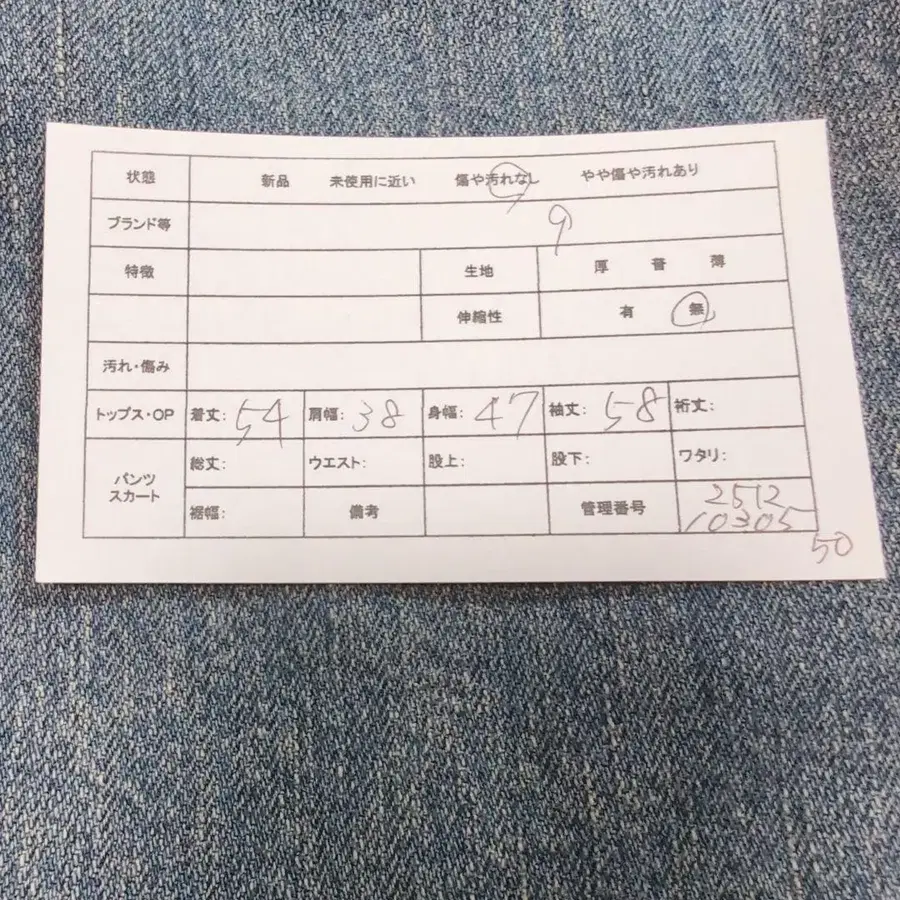 状態 新品 未使用に近い 傷や汚れなし やや傷や汚れあり
ブランド等 9
特徴 生地 厚 普 薄
伸縮性 有 無
汚れ・傷み
トップス・OP 着丈: 54 肩幅: 38 身幅: 47 袖丈: 58 裄丈:
パンツ スカート 総丈: ウエスト: 股上: 股下: ワタリ:
裾幅: 備考 管理番号 2512
10305
50